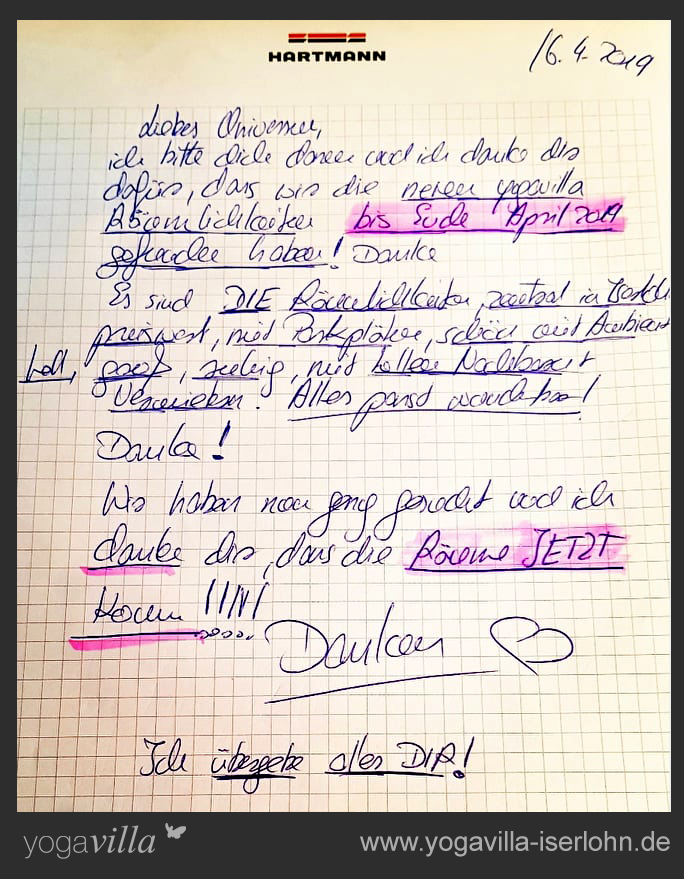 HARTMANN
16.4.2019
Liebes Universum,
ich bitte dich darum und ich danke dir
dafür, dass wir die neuen yogavilla
Räumlichkeiten bis Ende April 2019
gefunden haben! Danke
Es sind DIE Räumlichkeiten, zentral in Iserlohn
preiswert, mit Parkplätzen, schön mit Ambiente
hell, groß, ruhig, mit tollen Nachbarn +
Vermietern. Alles passt wunderbar!
Danke!
Wir haben nun genug gesucht und ich
danke dir, dass die Räume JETZT
kommen !!!!!
Danken
Ich übergebe alles DIR!
yogavilla
www.yogavilla-iserlohn.de